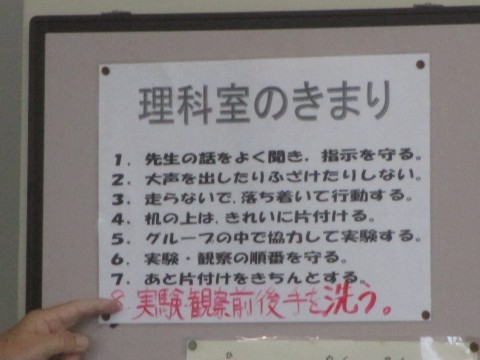 理科室のきまり
1. 先生の話をよく聞き、指示を守る。
2. 大声を出したりふざけたりしない。
3. 走らないで、落ち着いて行動する。
4. 机の上は、きれいに片付ける。
5. グループの中で協力して実験する。
6. 実験・観察の順番を守る。
7. あと片付けをきちんとする。
8. 実験・観察前後手を洗う。